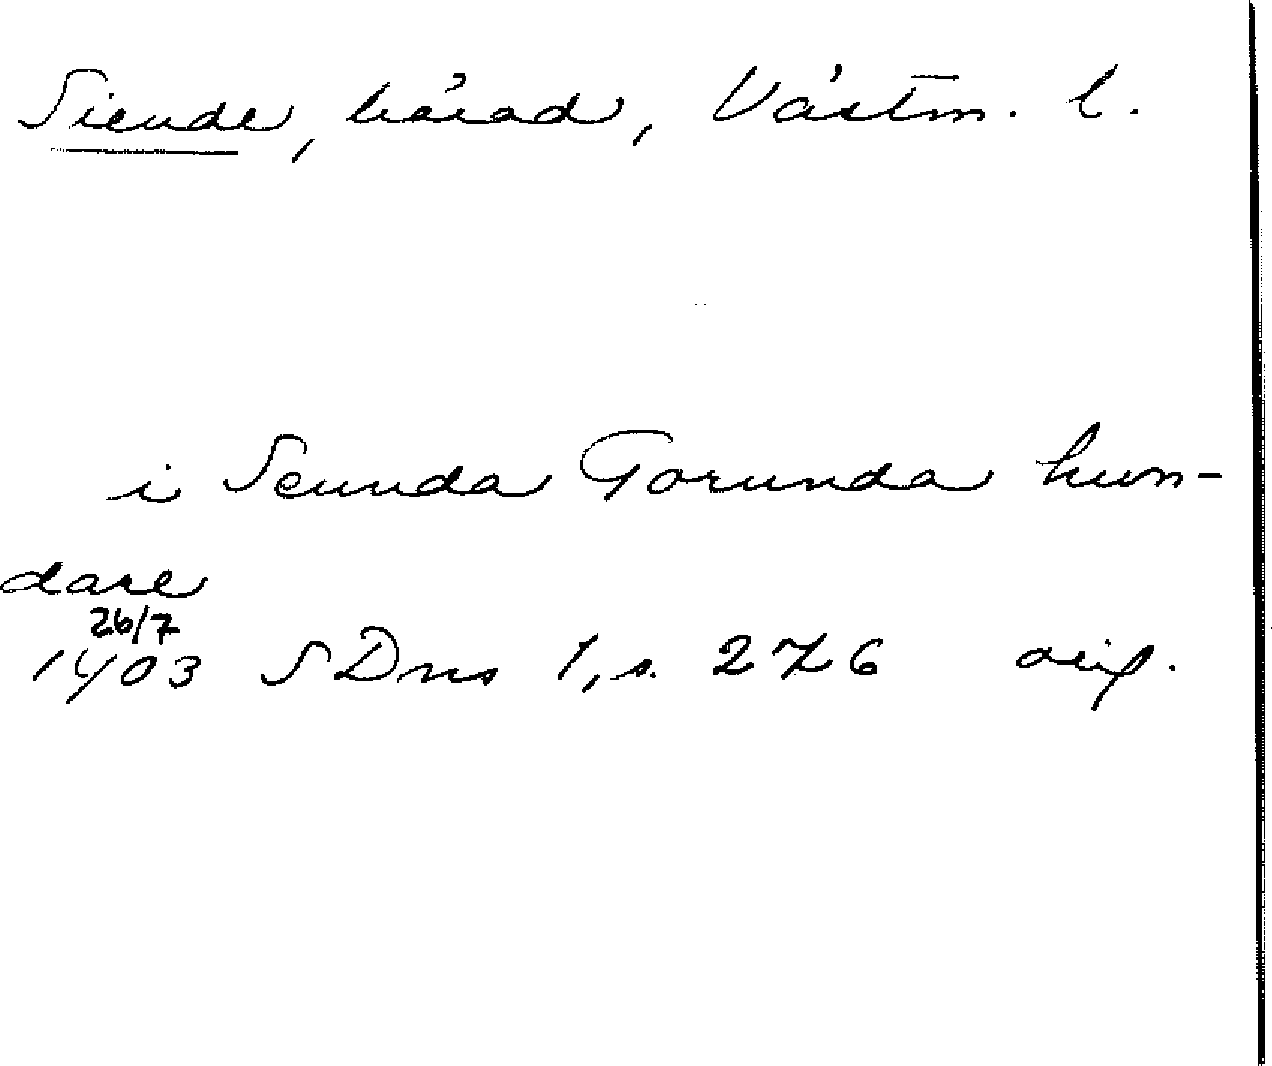 Siende, härad, Västm. l.
i Seunda Torunda hun-
dare
26/7
1403 SDns 1, s. 276 orig.